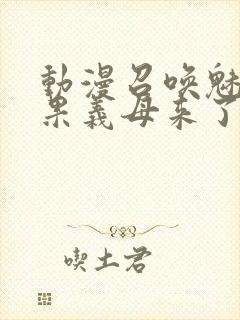 動漫召喚魅
果義母来了
喫土君